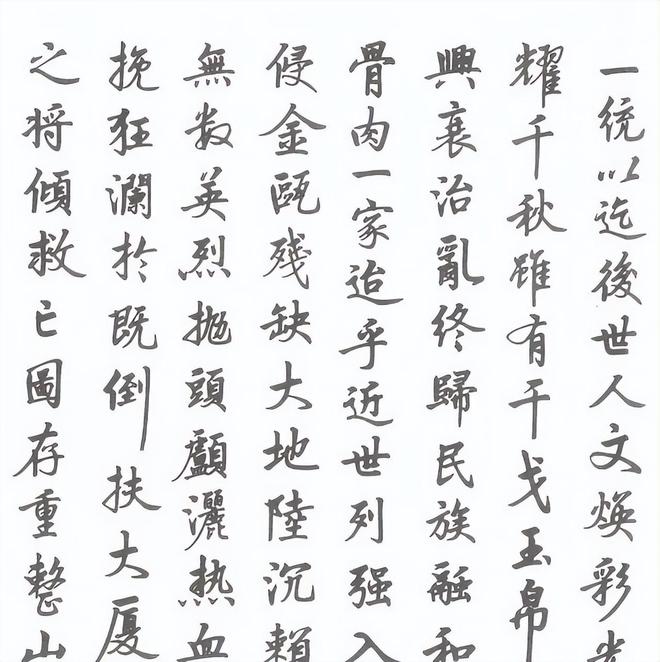 一統以迄後世人文煥彩光
耀千秋雖有干戈玉帛
興衰治亂終歸民族融和
骨肉一家迨乎近世列强入
侵金甌殘缺大地陸沉賴
無数英烈抛頭顱灑热血
挽狂瀾於既倒扶大厦
之將傾救亡圖存重整山